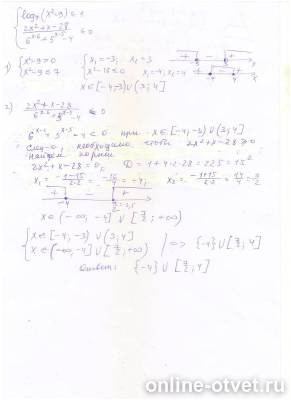 log₇(x²-9) ≤ 1
(2x²+x-28)/(6^(x-6)+5^(x-5)-4) ≤ 0
1) { x²-9>0 { x₁=-3; x₂=3
{ x²-9≤7 { x²-16≤0 x₁=-4; x₂=4
x∈[-4;-3)∪(3;4]
2) (2x²+x-28)/(6^(x-6)+5^(x-5)-4) ≤ 0
-4<0 при x∈[-4;-3)∪(3;4]
след-о, необходимо, чтобы 2x²+x-28≥0
найдем корни
2x²+x-28=0; D=1+4·2·28=225=15²
x₁=(-1-15)/(2·2)=-16/4=-4; x₂=(-1+15)/(2·2)=14/4=7/2
x∈(-∞;-4]∪[7/2;+∞)
{ x∈[-4;-3)∪(3;4]
{ x∈(-∞;-4]∪[7/2;+∞) | => {-4}∪[7/2;4]
Ответ: {-4}∪[7/2;4]
online-otvet.ru